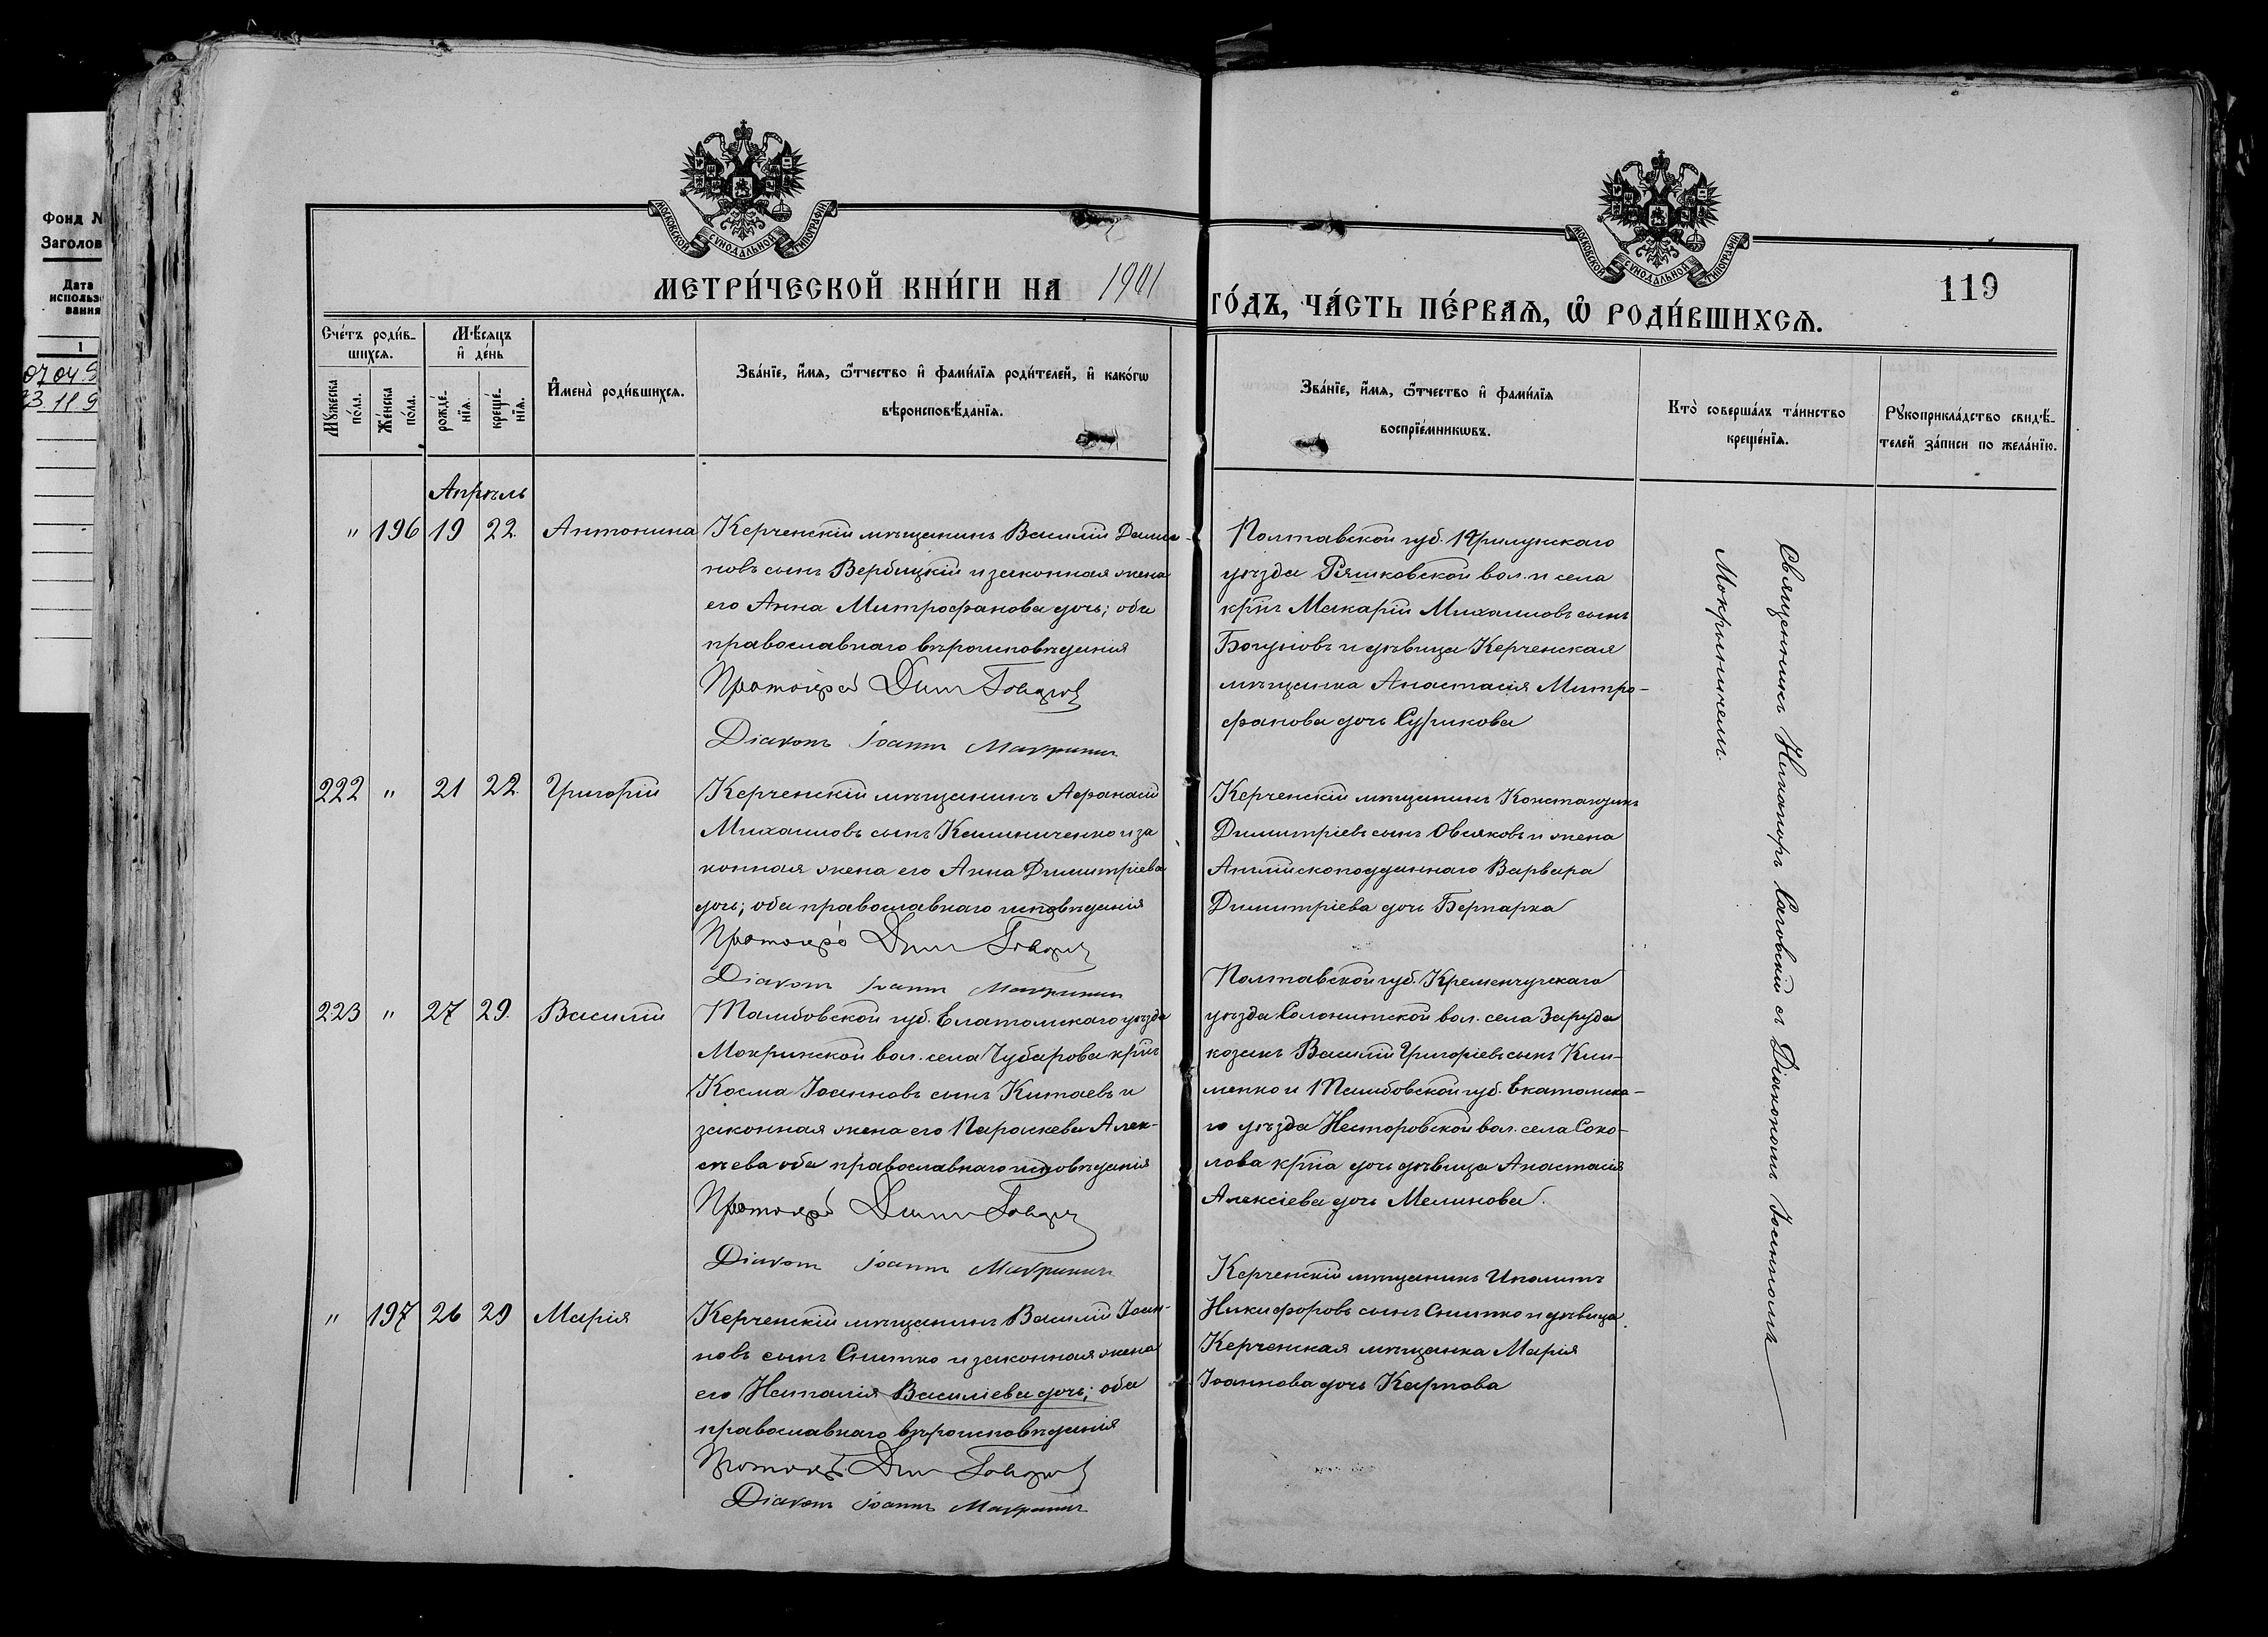 Фонд №
Заголов
Дата
использо
вания
1
МОСКОВСКОЙ СѴНОДАЛЬНОЙ ТИПОГРАФІИ
МОСКОВСКОЙ СѴНОДАЛЬНОЙ ТИПОГРАФІИ
МЕТРИ́ЧЕСКОЙ КНИ́ГИ НА 1901
ГО́ДЪ, ЧА́СТЬ ПЕ́РВАѦ, Ѽ РОДИ́ВШИХСѦ.
119
Сче́тъ роди́в-
шихсѧ.
Мѣ́сѧцъ
и҆ де́нь
Мꙋ́жеска
по́ла.
Же́нска
по́ла.
рожде́-
нїѧ.
креще́-
нїѧ.
И҆мена̀ роди́вшихсѧ.
Зва́нїе, и҆́мѧ, ѻ҆́тчество и҆ фами́лїѧ роди́телей, и҆ како́гѡ
вѣроисповѣ́данїѧ.
Зва́нїе, и҆́мѧ, ѻ҆́тчество и҆ фами́лїѧ
воспрїе́мникѡвъ.
Кто̀ соверша́лъ та́инство
креще́нїѧ.
Рꙋкоприкла́дство свидѣ́-
телей за́писи по жела́нїю.
Апрѣль
" 196 19 22. Антонина
Керченскій мѣщанинъ Василій
новъ сынъ Вербицкій и законная жена
его Анна Митрофанова дочь; оба
православнаго вѣроисповѣданія
Протоіерей Дим
Діаконъ Іоаннъ Мокринич
Полтавской губ. Прилукскаго
уѣзда Ряшковской вол. и села
кр҃нъ Макарій Михаиловъ сынъ
Богуновъ и дѣвица Керченская
мѣщанка Анастасія Митро-
фанова дочь Сурикова
222 " 21 22. Григорій
Керченскій мѣщанинъ Афанасій
Михаиловъ сынъ Калиниченко и за
конная жена его Анна Димитріева
дочь; оба православнаго исповѣданія
Протоіерей Дим
Діаконъ Іоаннъ Мокринич
Керченскій мѣщанинъ Константинъ
Димитріевъ сынъ Овсяковъ и жена
Англійскоподданнаго Варвара
Димитріева дочь Бернарка
223 " 27 29. Василій
Тамбовской губ. Елатомскаго уѣзда
Мокринской вол. села Чубарова кр҃нъ
Косма Іоанновъ сынъ Китаевъ и
законная жена его Параскева Алек-
сѣева оба православнаго исповѣданія
Протоіерей Дим
Діаконъ Іоаннъ Мокринич
Полтавской губ. Кременчугскаго
уѣзда Солоницкой вол. села Заруда
козакъ Василій Григоріевъ сынъ Кли-
менко и Тамбовской губ. Екатомска-
го уѣзда Несторовской вол. села Соко-
лова кр҃на дочь дѣвица Анастасія
Алексіева дочь Мелинова.
" 197 26 29 Марія
Керченскій мѣщанинъ Василій Іоан-
новъ сынъ Снитко и законная жена
его Наталія Василіева дочь; оба
православнаго вѣроисповѣданія
Протоіерей Дим
Діаконъ Іоаннъ Мокринич
Керченскій мѣщанинъ Иполитъ
Никифоровъ сынъ Снитко и дѣвица
Керченская мѣщанка Марія
Іоаннова дочь Карпова
Священникъ Никаноръ Саговскій съ Діакономъ Іоанномъ
Мокриничемъ.